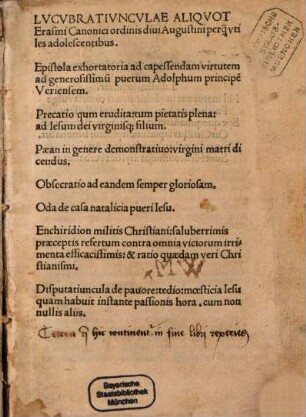 LVCVBRATIVNCVLAE ALIQVOT
Erasmi Canonici ordinis diui Augustini perq̃ vti
les adolescentibus.
Epistola exhortatoria ad capessendam virtutem
ad generosissimũ puerum Adolphum principẽ
Veriensem.
Precatio qum erudita: tum pietatis plena:
ad Iesum dei virginisq; filium.
Pæan in genere demonstratiuo: virgini matri di
cendus.
Obsecratio ad eandem semper gloriosam.
Oda de casa natalicia pueri Iesu.
Enchiridion militis Christiani: saluberrimis
præceptis refertum contra omnia viciorum irri
menta efficacissimis: & ratio quædam veri Chri
stianismi.
MW
Disputatiuncula de pauore: tedio: mœsticia Iesu
quam habuit instante passionis hora, cum non
nullis aliis.
hic in fine libri reperies
Bayerische
Staatsbibliothek
München